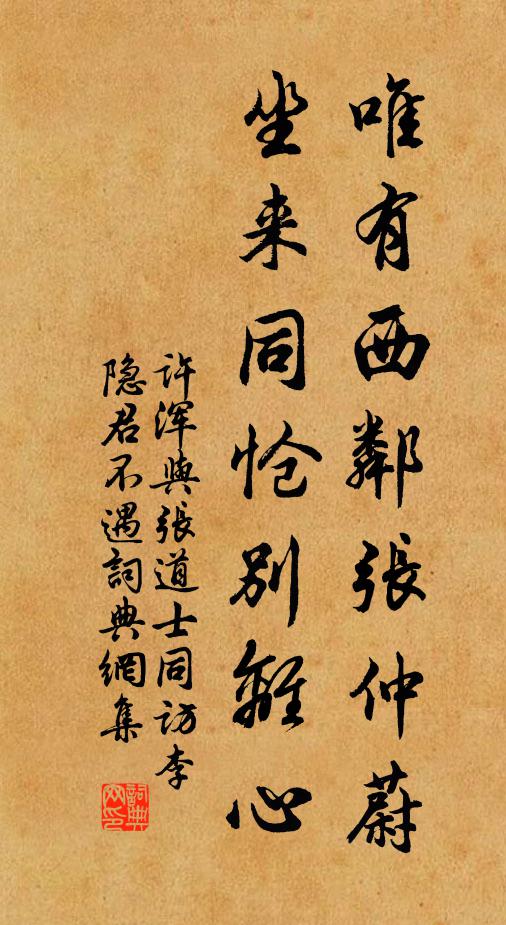 唯有西鄰張仲蔚
坐来同怆別離心
许浑與張道士同访李
隐君不遇詞典網集
詞典网印